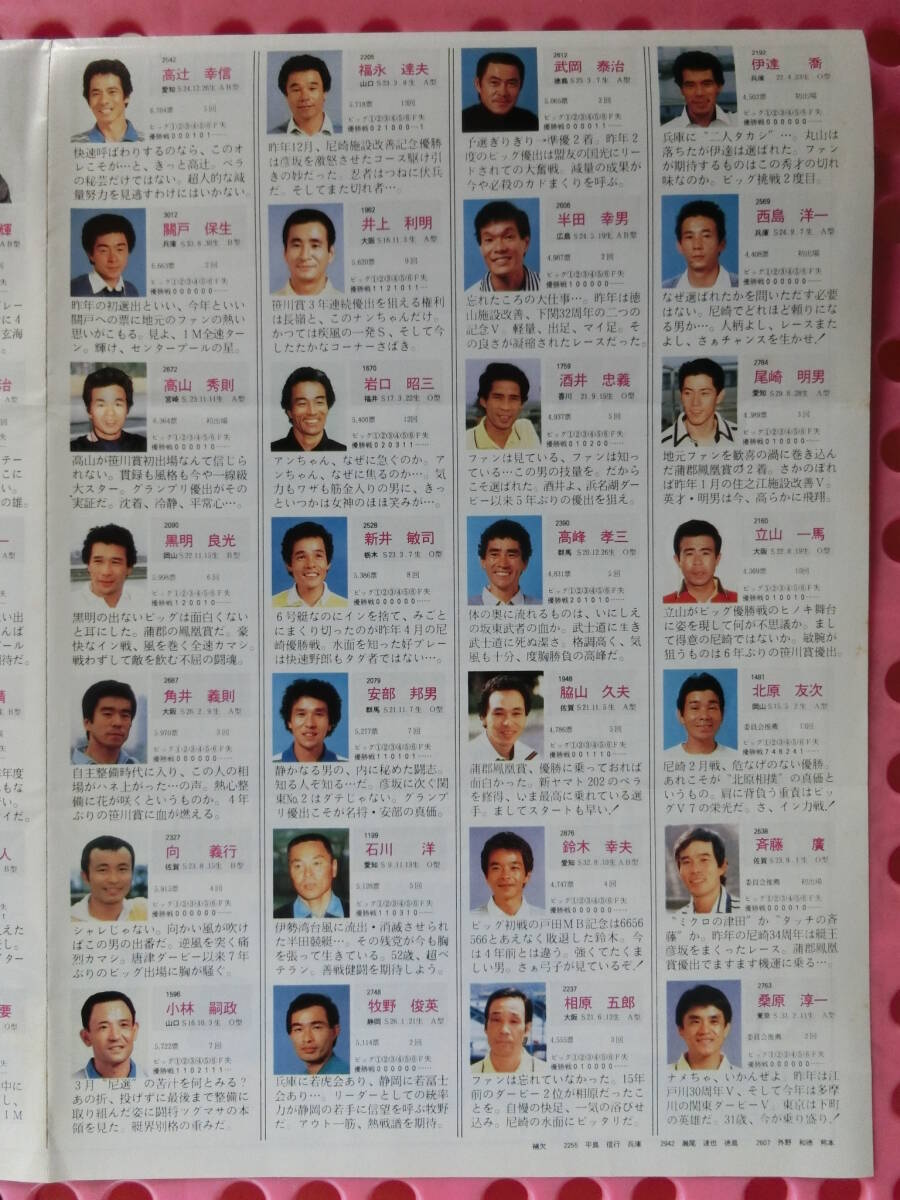 2542
高辻 幸信
愛知 S24.12.26生 AB型
6.704票 5回
ビッグ①②③④⑤⑥F失
優勝戦000101……
快速呼ばわりするのなら、このオ
レこそが…と、きっと高辻。ペラ
の秘芸だけではない。超人的な減
量努力を見逃すわけにはいかない。
2205
福永 達夫
山口 S23.3.8生 A型
5.718票 13回
ビッグ①②③④⑤⑥F失
優勝戦021000…1
昨年12月、尼崎施設改善記念優勝
は彦坂を激怒させたコース駆け引
きの妙だった。忍者はつねに伏兵
だ。そしてまた切れ者…。
2612
武岡 泰治
徳島 S25.3.7生 A型
5.065票 2回
ビッグ①②③④⑤⑥F失
優勝戦000011……
予選ぎりぎり→準優2着。昨年2
度のビッグ優出は盟友の国光にリー
ドされての大奮戦。減量の成果が
今や必殺のカドまくりを呼ぶ。
2192
伊達 喬
兵庫 22.4.23生 O型
4.502票 初出場
ビッグ①②③④⑤⑥F失
優勝戦000000……
兵庫に“二人タカシ”…。丸山は
落ちたが伊達は選ばれた。ファン
が期待するものはこの秀才の切れ
味なのか。ビッグ挑戦2度目。
3012
關戸 保生
兵庫 S33.8.30生 B型
6.663票 2回
ビッグ①②③④⑤⑥F失
優勝戦000000……
昨年の初選出といい、今年といい
關戸への票に地元のファンの熱い
思いがこもる。見よ、1M全速ター
ン。輝け、センタープールの星。
1962
井上 利明
大阪 S16.11.3生 A型
5.620票 9回
ビッグ①②③④⑤⑥F失
優勝戦1121011……
笹川賞3年連続優出を狙える権利
は長嶺と、このナンちゃんだけ。
かつては疾風の一発S、そして今
したたかなコーナーさばき。
2606
半田 幸男
広島 S24.5.19生 AB型
4.987票 2回
ビッグ①②③④⑤⑥F失
優勝戦100000……
忘れたころの大仕事…。昨年は徳
山施設改善、下関32周年の二つの
記念V。軽量、出足、マイ足。そ
の良さが凝縮されたレースだった。
2569
西島 洋一
兵庫 S24.9.7生 A型
4.408票 初出場
ビッグ①②③④⑤⑥F失
優勝戦000000……
なぜ選ばれたかを問いただす必要
はない。尼崎でどれほど頼りにな
る男か…。人柄よし、レースまた
よし、さぁチャンスを生かせ!
2672
高山 秀則
宮崎 S.23.11.11生 A型
6.364票 初出場
ビッグ①②③④⑤⑥F失
優勝戦000010……
高山が笹川賞初出場なんて信じら
れない。貫録も風格も今や一線級
大スター。グランプリ優出がその
実証だ。沈着、冷静、平常心…。
1670
岩口 昭三
福井 S17.3.22生 O型
5.400票 12回
ビッグ①②③④⑤⑥F失
優勝戦020311……
アンちゃん、なぜに急ぐのか。ア
ンちゃん、なぜに焦るのか…。気
力もワザも筋金入りの男に、きっ
といつかは女神のほほ笑みが…。
1759
酒井 忠義
香川 21.9.15生 O型
4.937票 5回
ビッグ①②③④⑤⑥F失
優勝戦010200……
ファンは見ている、ファンは知っ
ている…この男の技量を。だから
こそ選ばれた。酒井よ、浜名湖ダー
ビー以来5年ぶりの優出を狙え。
2784
尾崎 明男
愛知 S29.8.28生 A型
4.389票 5回
ビッグ①②③④⑤⑥F失
優勝戦010000……
地元ファンを歓喜の渦に巻き込ん
だ蒲郡鳳凰賞の2着。さかのぼれ
ば昨年1月の住之江施設改善V。
英才・明男は今、高らかに飛翔。
2090
黒明 良光
岡山 S22.11.15生 B型
5.998票 6回
ビッグ①②③④⑤⑥F失
優勝戦120010……
黒明の出ないビッグは面白くない
と耳にした。蒲郡の鳳凰賞だ。豪
快なイン戦、風を巻く全速カマシ。
戦わずして敵を飲む不屈の闘魂。
2528
新井 敏司
栃木 S23.3.7生 O型
5.386票 8回
ビッグ①②③④⑤⑥F失
優勝戦000000……
6号艇なのにインを捨て、みごと
にまくり切ったのが昨年4月の尼
崎優勝戦。水面を知った好プレー
は快速野郎もタダ者ではない…。
2390
高峰 孝三
群馬 S20.12.26生 O型
4.831票 5回
ビッグ①②③④⑤⑥F失
優勝戦201010……
体の奥に流れるものは、いにしえ
の坂東武者の血か。武士道に生き
武士道に死ぬ潔さ。格調高く、気
風も十分、度胸勝負の高峰だ。
2160
立山 一馬
大阪 S22.8.19生 O型
4.369票 10回
ビッグ①②③④⑤⑥F失
優勝戦010110……
立山がビッグ優勝戦のヒノキ舞台
に姿を現して何が不思議か。まし
て得意の尼崎ではないか。敏腕が
狙うものは6年ぶりの笹川賞優出。
2687
角井 義則
大阪 S26.2.9生 A型
5.970票 3回
ビッグ①②③④⑤⑥F失
優勝戦000000……
自主整備時代に入り、この人の相
場がハネ上がった…の声。熱心整
備に花が咲くというものか。4年
ぶりの笹川賞に血が燃える。
2079
安部 邦男
群馬 S21.11.7生 O型
5.217票 7回
ビッグ①②③④⑤⑥F失
優勝戦110101……
静かなる男の、内に秘めた闘志。
知る人ぞ知る…だ。彦坂に次ぐ関
東No.2はダテじゃない。グランプ
リ優出こそが名将・安部の真価。
1948
脇山 久夫
佐賀 S21.11.5生 A型
4.786票 5回
ビッグ①②③④⑤⑥F失
優勝戦001110……
蒲郡鳳凰賞、優勝に乗っておれば
面白かった。新ヤマト202のペラ
を修得、いま最高に乗れている選
手。ましてスタートも早い!
1481
北原 友次
岡山 S15.5.2生 A型
委員会推薦 13回
ビッグ①②③④⑤⑥F失
優勝戦746241……
尼崎2月戦、危なげのない優勝。
あれこそが“北原相撲”の真価と
いうもの。肩に背負う重責はビッ
グV7の栄光だ。さ、イン力戦!
2327
向 義行
佐賀 S23.8.15生 B型
5.915票 4回
ビッグ①②③④⑤⑥F失
優勝戦000000……
シャレじゃない。向かい風が吹け
ばこの男の出番だ。逆風を突く痛
烈カマシ。唐津ダービー以来7年
ぶりのビッグ出場に胸が騒ぐ。
1199
石川 洋
愛知 S9.11.13生 O型
5.128票 5回
ビッグ①②③④⑤⑥F失
優勝戦110310……
伊勢湾台風に流出・消滅させられ
た半田競艇…。その残党が今も胸
を張って生きている。52歳、超ベ
テラン。善戦健闘を期待しよう。
2876
鈴木 幸夫
愛知 S32.8.13生 AB型
4.747票 4回
ビッグ①②③④⑤⑥F失
優勝戦000000……
ビッグ初戦の戸田MB記念は6656
566とあえなく敗退した鈴木。今
は4年前とは違う。強くてたくま
しい男。さぁ弓子が見ているぞ!
2638
斉藤 廣
佐賀 S23.9.1生 O型
委員会推薦 初出場
ビッグ①②③④⑤⑥F失
優勝戦000000……
“ミクロの津田”か“タッチの斉
藤”か。昨年の尼崎34周年は艇王
彦坂をまくったレース。蒲郡鳳凰
賞優出でますます機運に乗る…。
1596
小林 嗣政
山口 S16.10.3生 O型
5.722票 7回
ビッグ①②③④⑤⑥F失
優勝戦1102111……
3月“尼選”の苦汁を何とみる?
あの折、投げずに最後まで整備に
取り組んだ姿に闘将ツグマサの本
領を見た。艇界別格の重みだ。
2748
牧野 俊英
静岡 S26.1.21生 A型
5.114票 2回
ビッグ①②③④⑤⑥F失
優勝戦000000……
兵庫に若虎会あり、静岡に若富士
会あり…。リーダーとしての統率
力が静岡の若手に信望を呼ぶ牧野
だ。アウト一筋、熱戦譜を期待。
2237
相原 五郎
大阪 S21.6.12生 A型
4.555票 3回
ビッグ①②③④⑤⑥F失
優勝戦010000……
ファンは忘れていなかった。15年
前のダービー2位が相原だったこ
とを。自慢の快足、一気の浴びせ
込み。尼崎の水面にピッタリだ。
2763
桑原 淳一
東京 S.31.2.11生 A型
委員会推薦 2回
ビッグ①②③④⑤⑥F失
優勝戦100000……
ナメちゃ、いかんぜよ。昨年は江
戸川30周年V、そして今年は多摩
川の関東ダービーV。東京は下町
の英雄だ。31歳、今が乗り盛り!
補欠 2255 平島 信行 兵庫 2942 瀬尾 達也 徳島 2607 外野 和徳 熊本